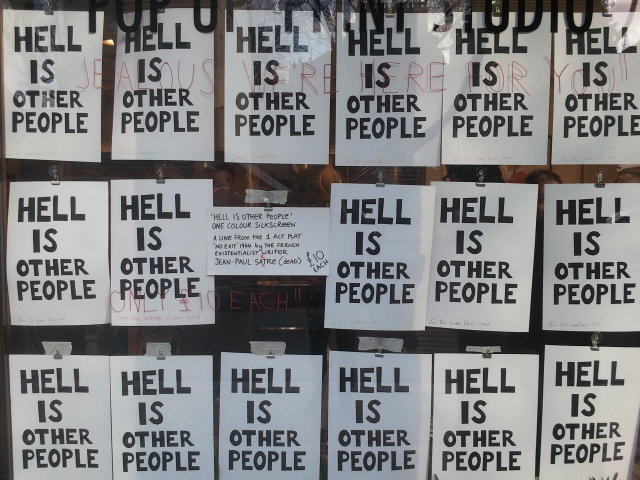 POP UP PRINT STUDIO
JEALOUS WE'RE HERE FOR YOU"
HELL
IS
OTHER
PEOPLE
HELL
IS
OTHER
PEOPLE
HELL
IS
OTHER
PEOPLE
HELL
IS
OTHER
PEOPLE
HELL
IS
OTHER
PEOPLE
HELL
IS
OTHER
PEOPLE
HELL
IS
OTHER
PEOPLE
HELL
IS
OTHER
PEOPLE
'HELL IS OTHER PEOPLE'
ONE COLOUR SILKSCREEN
A LINE FROM THE 1 ACT PLAY
'NO EXIT 1944 by THE FRENCH
EXISTENTIALIST WRITER
JEAN-PAUL SATRE (dead)
£10
EACH
ONLY £10 EACH"
HELL
IS
OTHER
PEOPLE
HELL
IS
OTHER
PEOPLE
HELL
IS
OTHER
PEOPLE
HELL
IS
OTHER
PEOPLE
HELL
IS
OTHER
PEOPLE
HELL
IS
OTHER
PEOPLE
HELL
IS
OTHER
PEOPLE
HELL
IS
OTHER
PEOPLE
HELL
IS
OTHER
PEOPLE